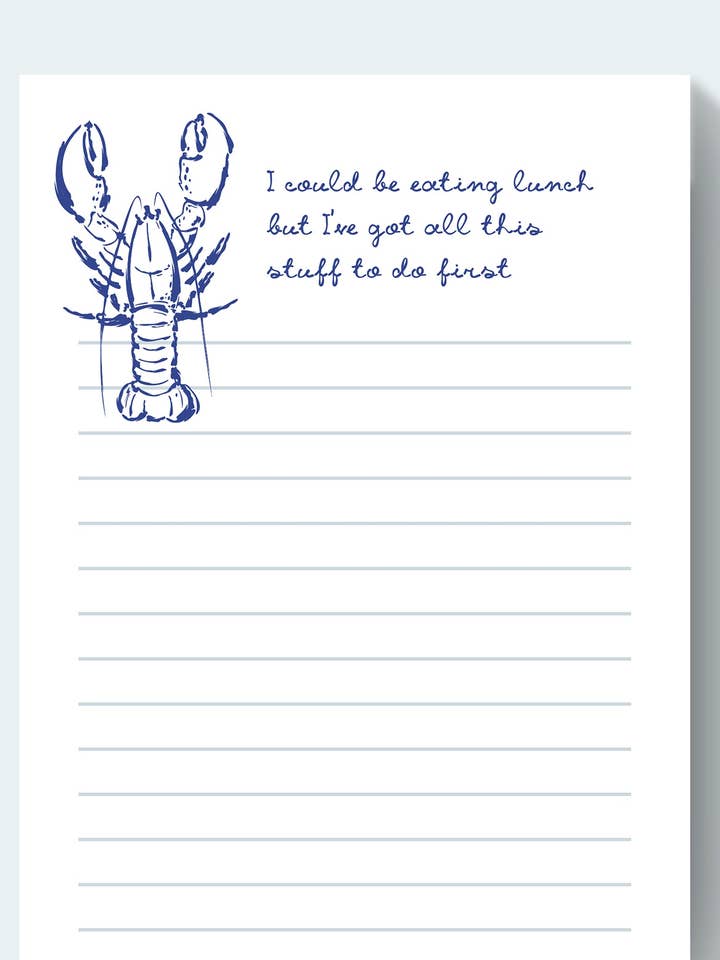 I could be eating lunch
but I've got all this
stuff to do first